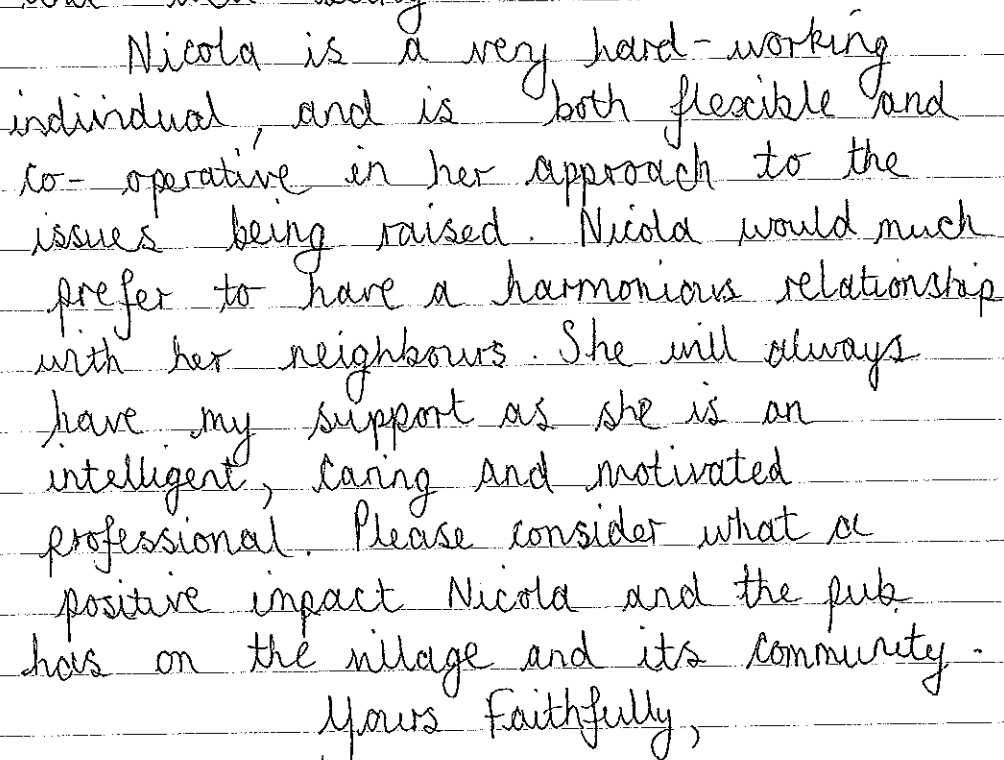 Nicola is a very hard-working
individual, and is both flexible and
co- operative in her approach to the
issues being raised. Nicola would much
prefer to have a harmonious relationship
with her neighbours. She will always
have my support as she is an
intelligent, caring and motivated
professional. Please consider what a
positive impact Nicola and the pub
has on the village and its community.
Yours Faithfully,